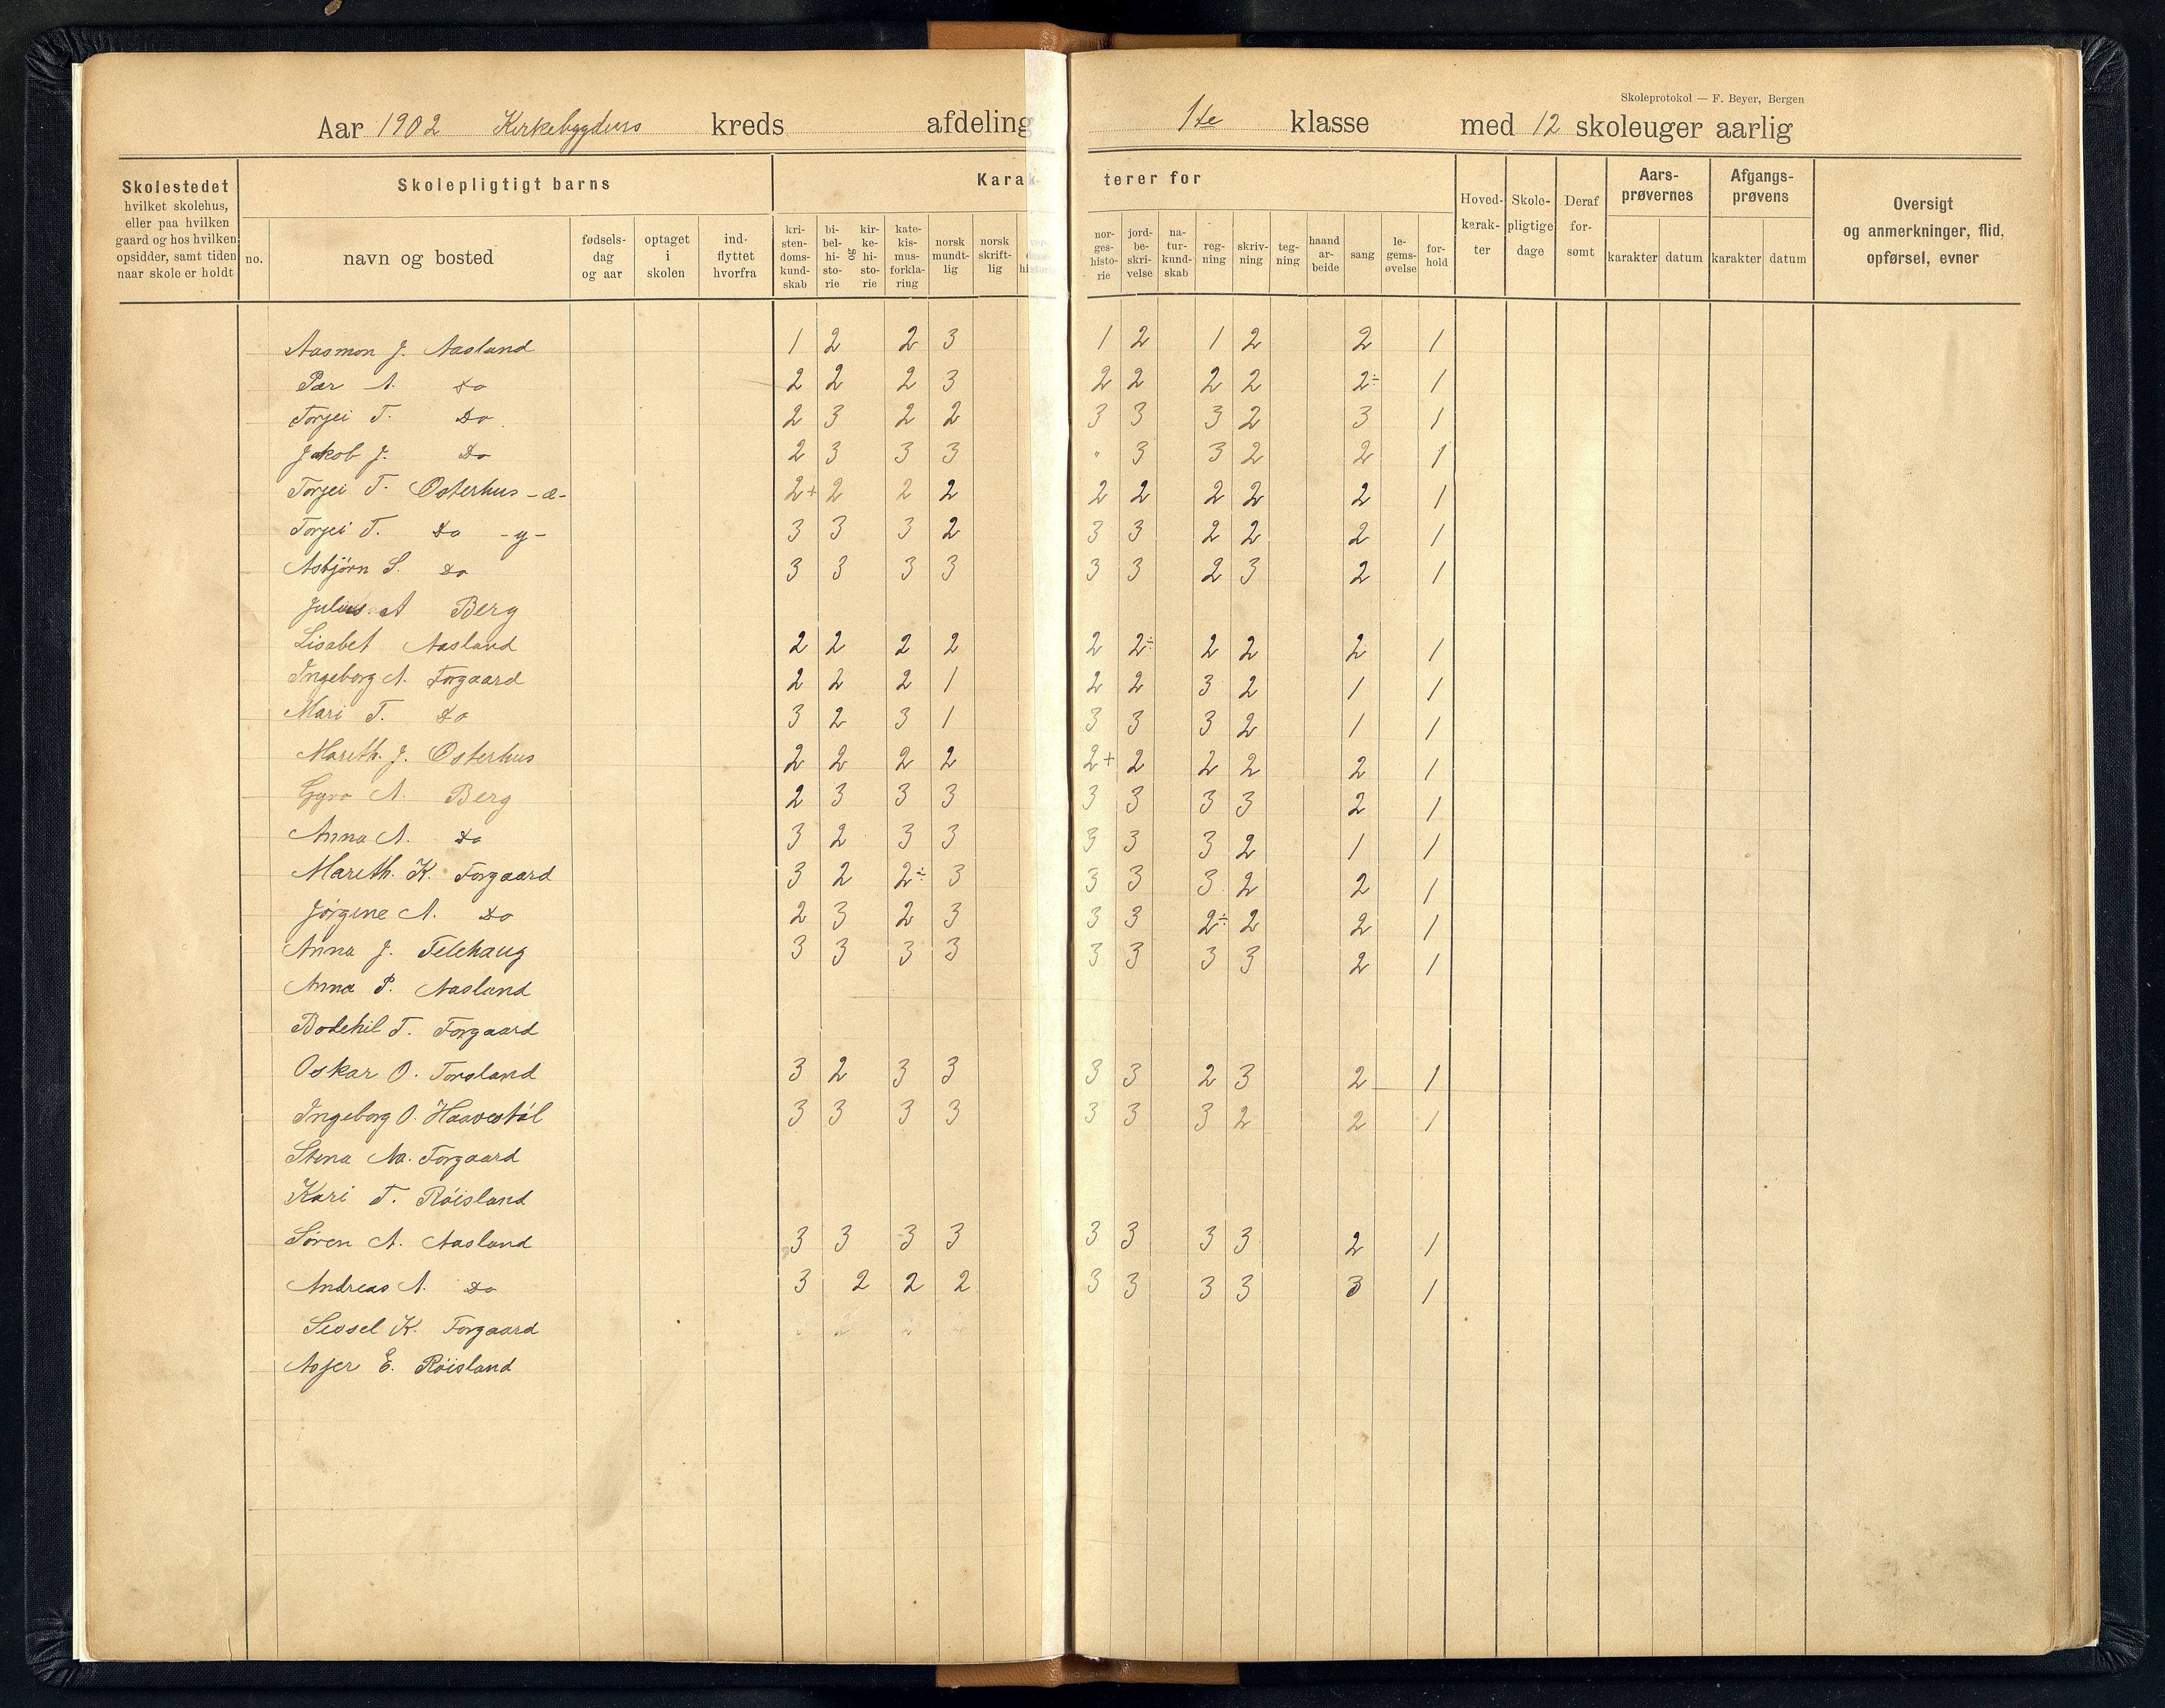 Skoleprotokol — F. Beyer, Bergen
Aar 1902 Kirkebygdens kreds afdeling 1te klasse med 12 skoleuger aarlig
Skolestedet hvilket skolehus, eller paa hvilken gaard og hos hvilken opsidder, samt tiden naar skole er holdt
Skolepligtigt barns
no. navn og bosted fødsels-dag og aar optaget i skolen ind-flyttet hvorfra
Karak- terer for
kri-sten-doms-kund-skab bi-bel-hi-sto-rie og kir-ke-hi-sto-rie kate-kis-mus-forkla-ring norsk mundt-lig norsk skrift-lig
nor-ges-histo-rie jord-be-skri-velse na-tur-kund-skab reg-ning skriv-ning teg-ning haand ar-beide sang le-gems-øvelse for-hold
Hoved-karak-ter Skole-pligtige dage Deraf for-sømt
Aars-prøvernes karakter datum
Afgangs-prøvens karakter datum
Oversigt og anmerkninger, flid, opførsel, evner
Aasmon J. Aasland 1 2 2 3 1 2 1 2 2 1
Per A. Do 2 2 2 3 2 2 2 2 2÷ 1
Torjei T. Do 2 3 2 2 3 3 3 2 3 1
Jakob J. Do 2 3 3 3 " 3 3 2 2 1
Torjei T. Osterhus -æ- 2+ 2 2 2 2 2 2 2 2 1
Torjei T. Do -y- 3 3 3 2 3 3 2 2 2 1
Asbjörn S. Do 3 3 3 3 3 3 2 3 2 1
Julius A Berg
Lisabet Aasland 2 2 2 2 2 2÷ 2 2 2 1
Ingeborg A. Forgaard 2 2 2 1 2 2 3 2 1 1
Mari T. Do 3 2 3 1 3 3 3 2 1 1
Mareth. J. Osterhus 2 2 2 2 2+ 2 2 2 2 1
Gyro A. Berg 2 3 3 3 3 3 3 3 2 1
Anna A. Do 3 2 3 3 3 3 3 2 1 1
Mareth. K. Forgaard 3 2 2÷ 3 3 3 3 2 2 1
Jörgine A. Do 2 3 2 3 3 3 2÷ 2 2 1
Anna J. Felehaug 3 3 3 3 3 3 3 3 2 1
Anna P. Aasland
Bodehil T. Forgaard
Oskar O. Torsland 3 2 3 3 3 3 2 3 2 1
Ingeborg O. Haavestöl 3 3 3 3 3 3 3 2 2 1
Stena Aa. Forgaard
Kari T. Röisland
Sören A. Aasland 3 3 3 3 3 3 3 3 2 1
Andreas A. Do 3 2 2 2 3 3 3 3 3 1
Sissel K. Forgaard
Asjer E. Röisland